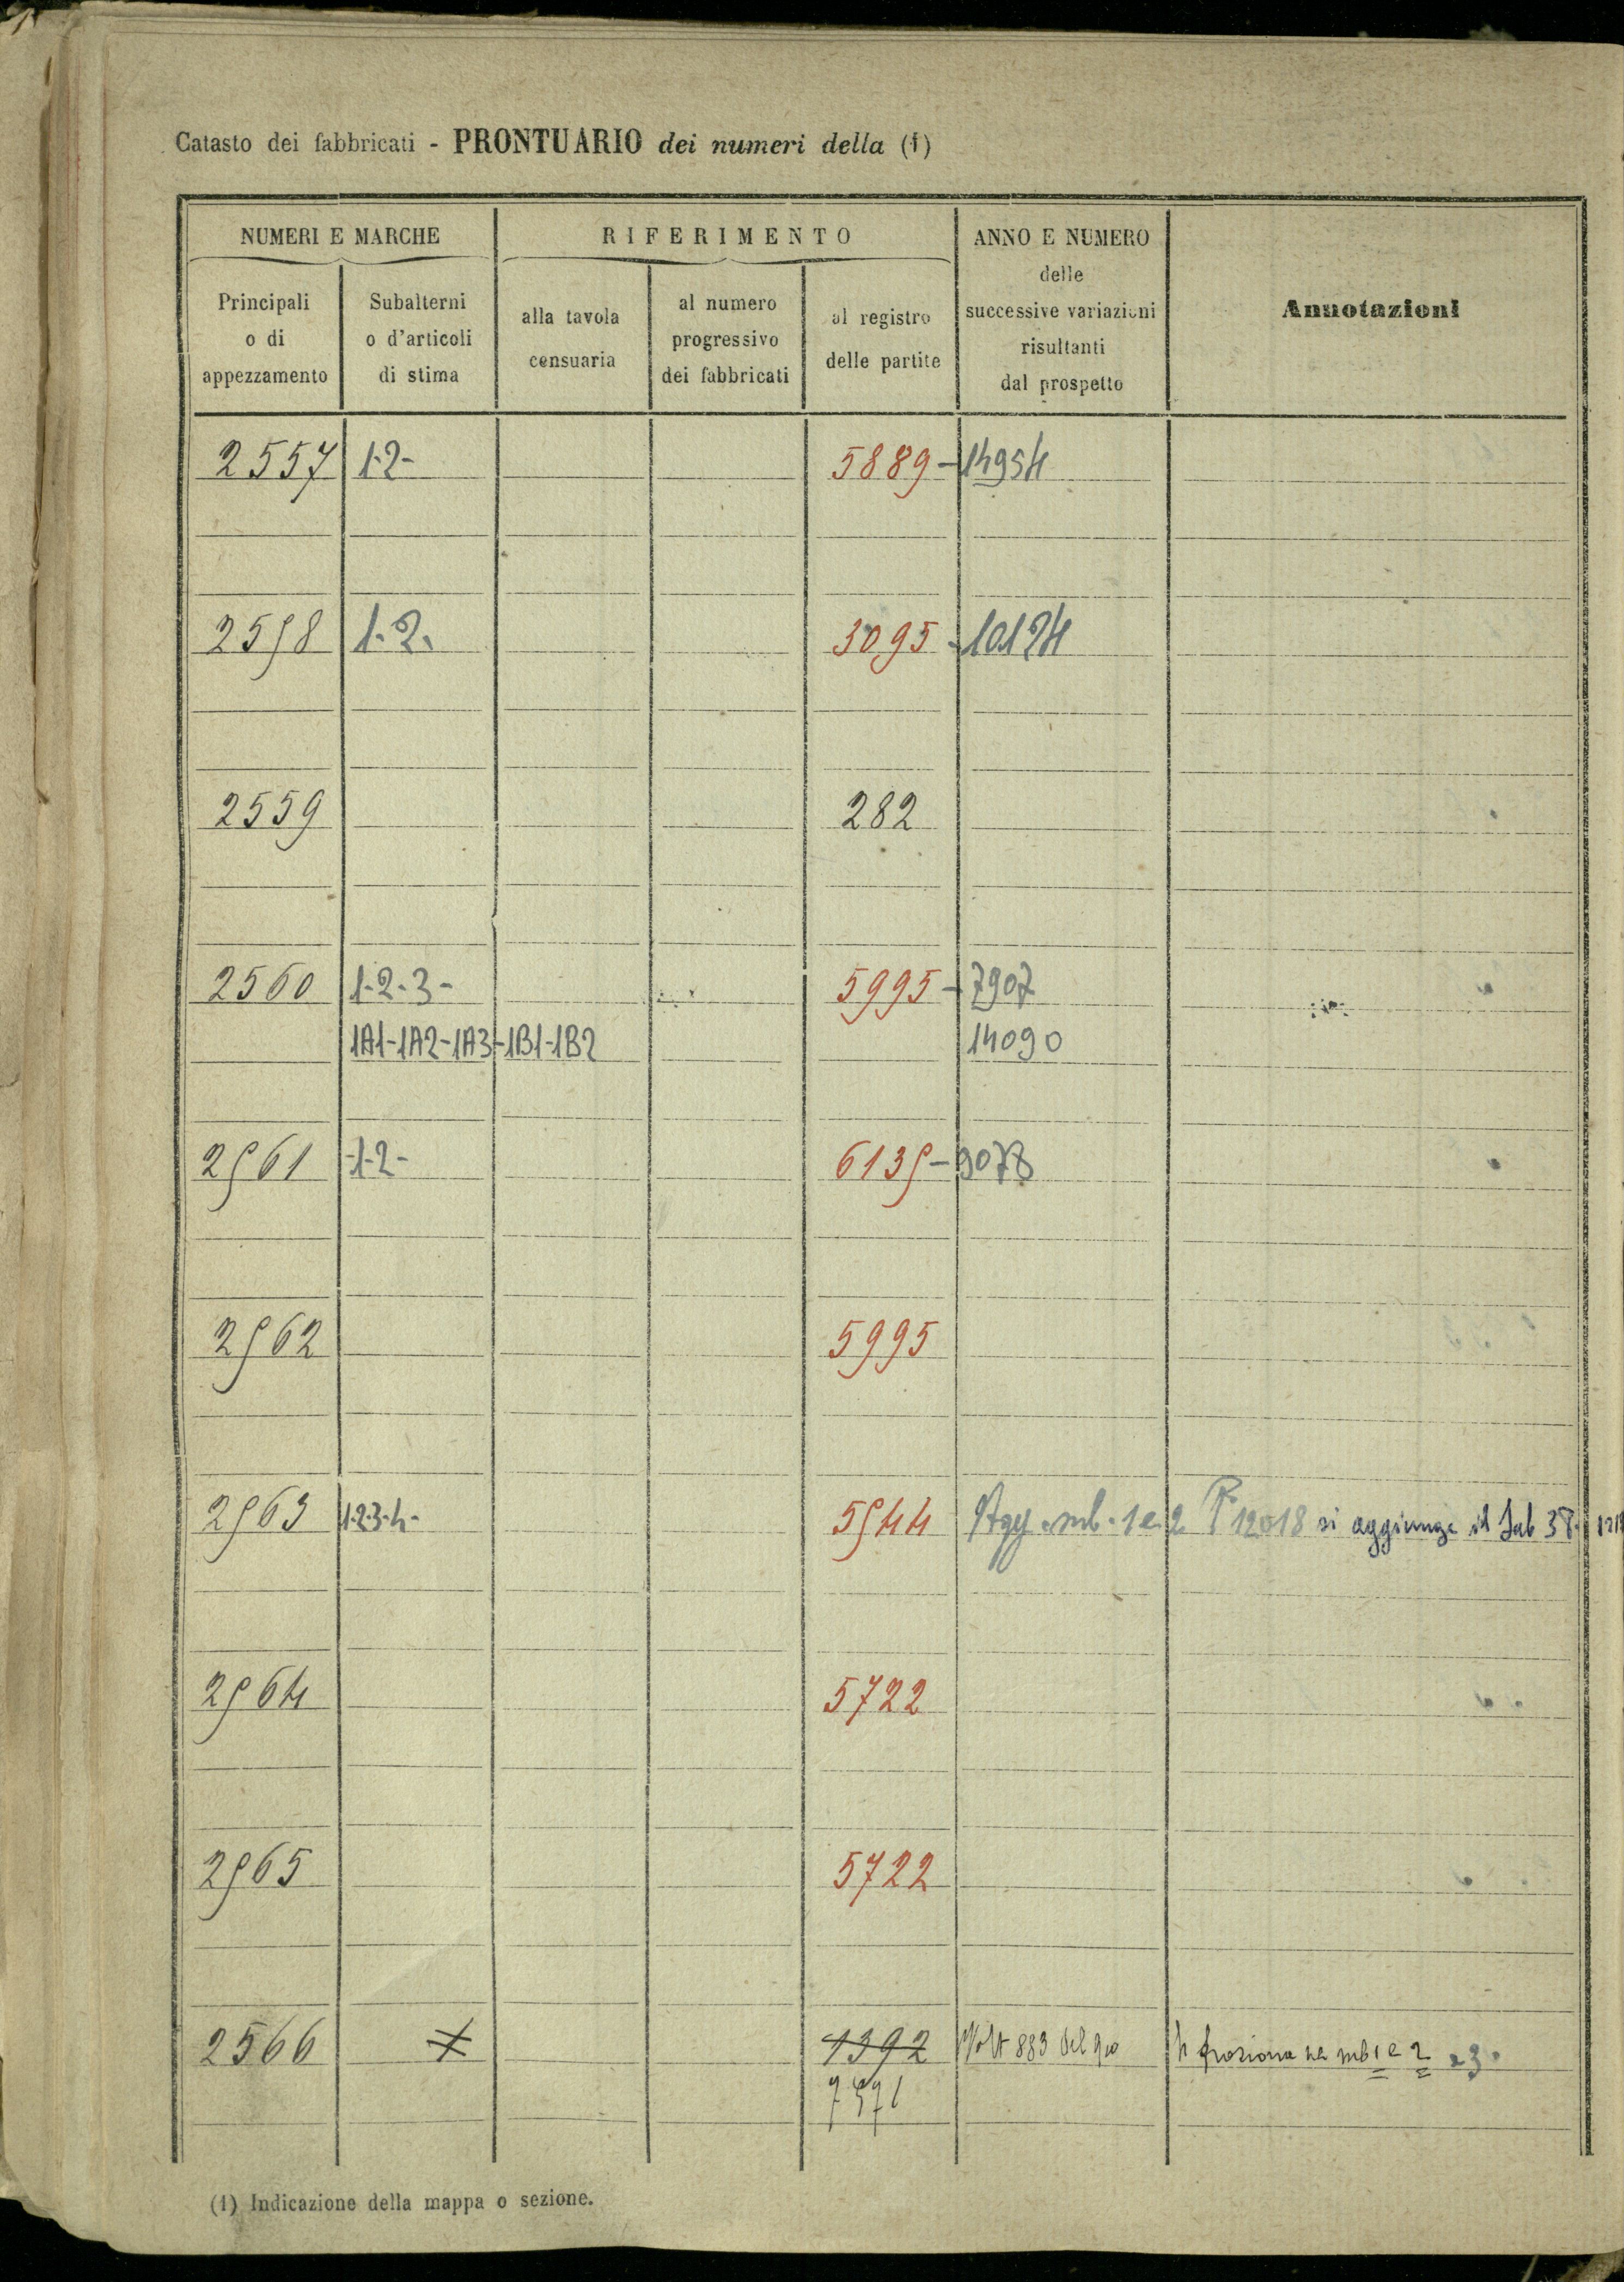 Catasto dei fabbricati - PRONTUARIO dei numeri della (1)
NUMERI E MARCHE
RIFERIMENTO
ANNO E NUMERO
delle
successive variazioni
risultanti
dal prospetto
Annotazioni
Principali
o di
appezzamento
Subalterni
o d'articoli
di stima
alla tavola
censuaria
al numero
progressivo
dei fabbricati
al registro
delle partite
2557 1-2- 5889 - 14954
2558 1.2. 3095 - 10124
2559 282
2560 1-2-3- 5995 - 7907
1A1-1A2-1A3-1B1-1B2 14090
2561 -1-2- 6135 - 9078
2562 5995
2563 1-2-3-4- 5544 Agg. sub. 1 e 2 P 12018 si aggiunge il Sub 38
2564 5722
2565 5722
2566 1392 883 del 910 sub 1 e 2 e 3
7571
(1) Indicazione della mappa o sezione.